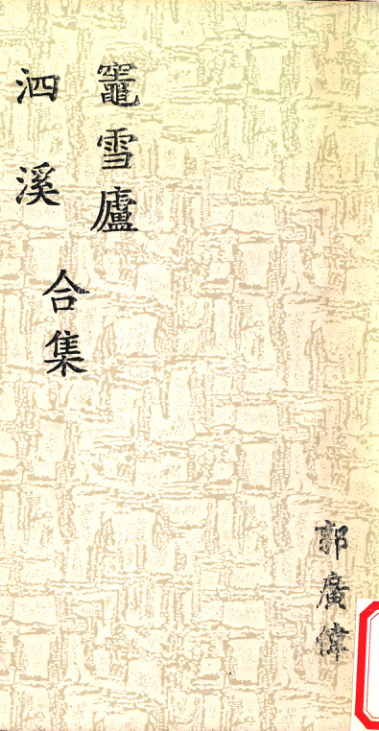 竈雪廬
泗溪
合集
郭廣偉